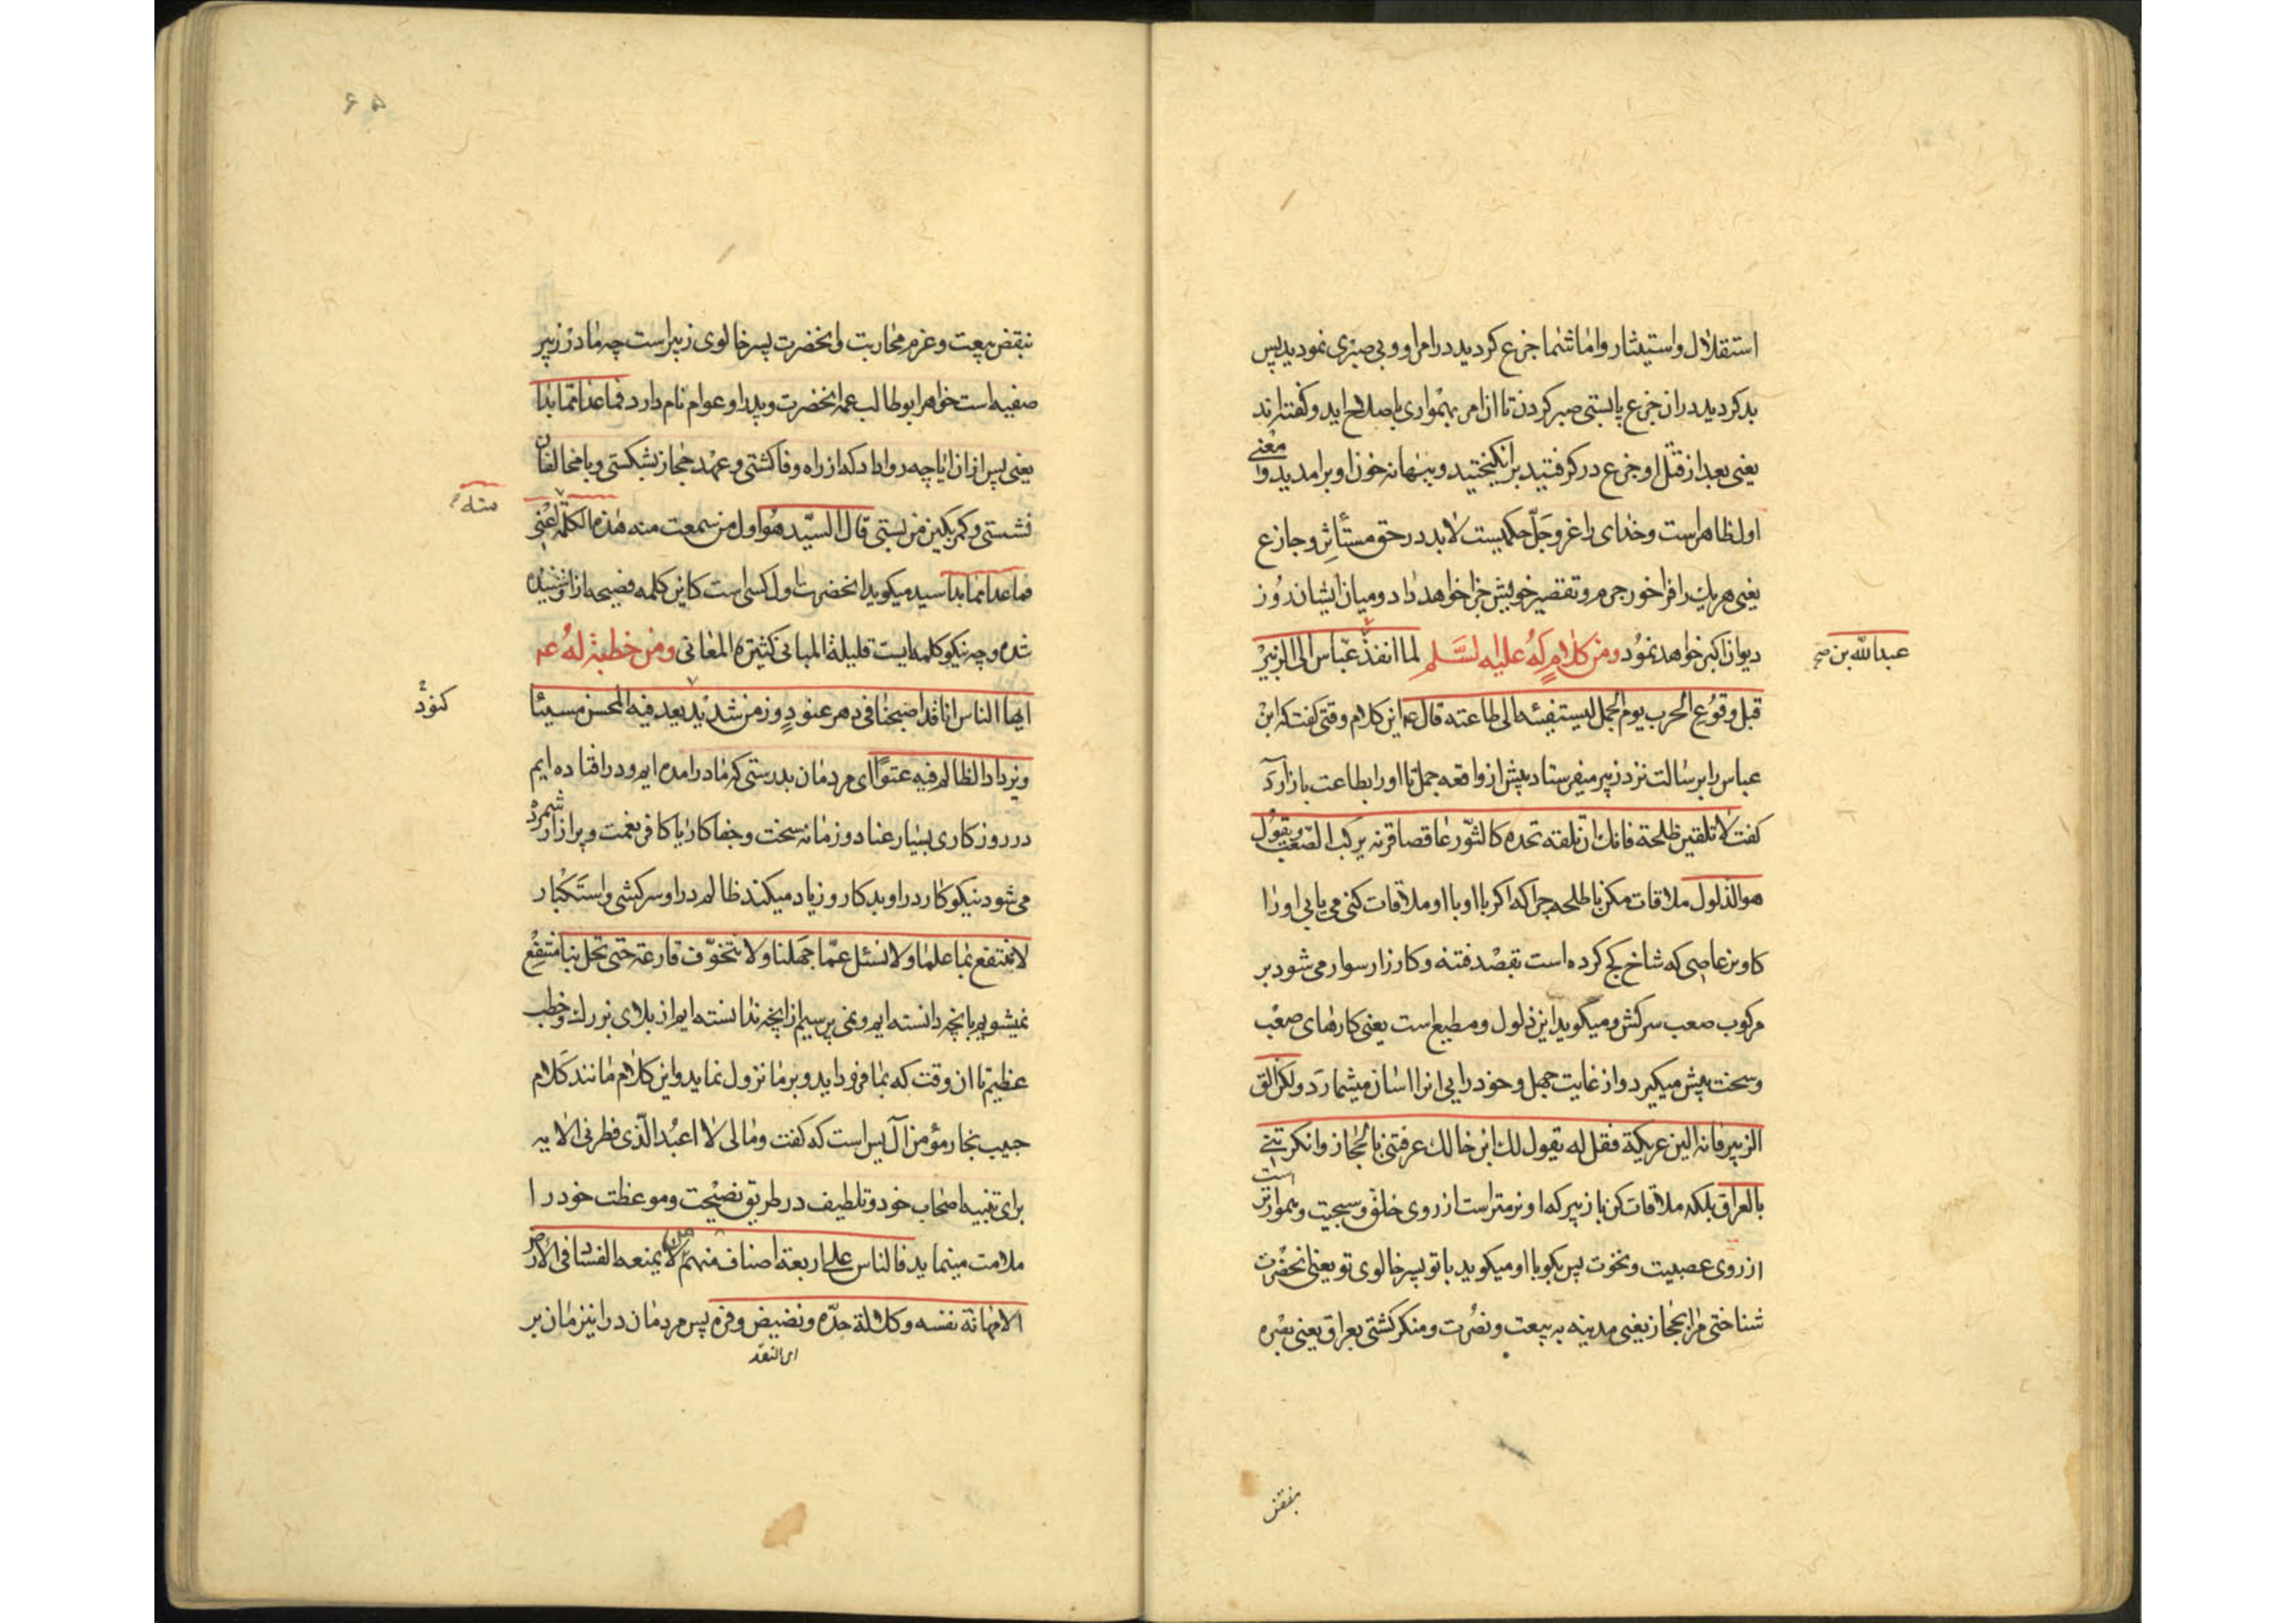 استقلال و استیثار و اما شما جزع کردید در امر او و بی صبری نمودید پس
بد کردید در ان جزع پایستی صبر کردن تا ان امر بهمواری باصلاح اید و کفته‌اند
یعنی بعد از قتل او جزع در کرفتید برانکیختید و ببهانه خون او برامدید و معنی
اول ظاهر است و خدای را عز و جَلّ حکمیست لابد در حق مستأثِر و جازع
یعنی هر یک را فراخور جرم و تقصیر خویش جزا خواهد داد و میان ایشان دُوز
دیوان اکبر خواهد نمود و من کلامٍ لَهُ علیه السَّلم لما انفذ عبّاس الی الزبیْر
عبدالله بن صح
قبل وقوُع الحرب یوم الجمل لیستفیئه الی طاعته قال ع این کلام وقتی کفت که ابن
عباس را برسالت نزد زبیر میفرستاد پیش از واقعه جمل تا او را بطاعت بازآرد
کفت لا تلقین طلحة فانك ان تلقه تجده کالثّور عاقصا قرنه یرکب الصّعب و یقوُل
هو الذلول ملاقات مکن با طلحه جراکه اکر با او با او ملاقات کنی می یابی او را
کاوین عاصی که شاخ کج کرده است بقصْد فتنه و کارزار سوار می شود بر
مرکوب صعب سرکش و میکوید این ذلول و مطیع است یعنی کارهای صعْب
و سخت پیش میکیرد و از غایت جهل و خود رایی انرا اسان میشمارَد و لکن الق
الزبیر فانه الین عریکة فقل له یقول لك ابن خالك عرفتنی بالحجاز و انکرتنی
بالعراق بلکه ملاقات کن با زبیر که او نرمتر است از روی خلق و سجیت و هموارتر است
از روی عصبیت و نخوت پس بکو با او میکوید با تو پسر خالوی تو یعنی انحضرت
شناختی مرا بحجاز یعنی مدینه به بیعت و نصُرت و منکر کشتی بعراق یعنی بصْره
بنقض
۵۶
بنقض بیعت و عزم محاربت و انحضرت پسر خالوی زبیر است چه مادر زبیر
صفیه است خواهر ابوطالب عمهٔ انحضرت و پدر او عوام نام دارد فما عدا ممّا بدا
یعنی پس از ان ایا چه روا داد که از راه وفا کشتی و عهْد حجاز بشکستی و با مخالفان
نشستی و کمر بکین من بستی قال السیّد هُوَ اول من سمعت منه هذه الکلمة اعْنی
منه
فما عدا مما بدا سید میکوید انحضرت اول کسی است که این کلمه فصیحه از او شنیده
شده و چه نیکو کلمه ایست قلیلة المبانی کثیره المعانی و من خطبة لهُ ع
ایها الناس انا قد اصبحنا فی دهر عنودٍ و زمن شدیْد یعد فیه المحسن مسیئا
کنوُدْ
و یزداد الظالم فیه عتوًا ای مردمان بدرستی که ما درامده ایم و درافتاده ایم
در روزکاری بسیار عناد و زمانه سخت و جفاکار یا کافر نعمت و پرازار شمرده
می شود نیکوکار در او بدکار و زیاد میکند ظالم در او سرکشی و استکبار
لا ننتفع بما علمنا و لا نسئل عمّا جهلنا و لا نتخوّف قارعة حتی تحل بنا منتفِع
نمیشویم بانچه دانسته ایم و نمی پرسیم از انچه ندانسته ایم از بلای بزرك و خطب
عظیم تا ان وقت که بما فرود اید و بر ما نزول نماید و این کلام مانند کَلام
حبیب نجار مؤمن آل یس است که کفت و ما لی لا اعبُد الّذی فطرنی الایه
برای تنبیه اصحاب خود و تلطیف در طریق نصیْحت و موعظت خود را
ملامت مینماید فالناس علی اربعة اصناف منهم من لا یمنعه الفساد فی الارض
الا مهانة نفسه و کلالة حدّه و نضیض وفره پس مردمان در این زمان بر
ای النقد